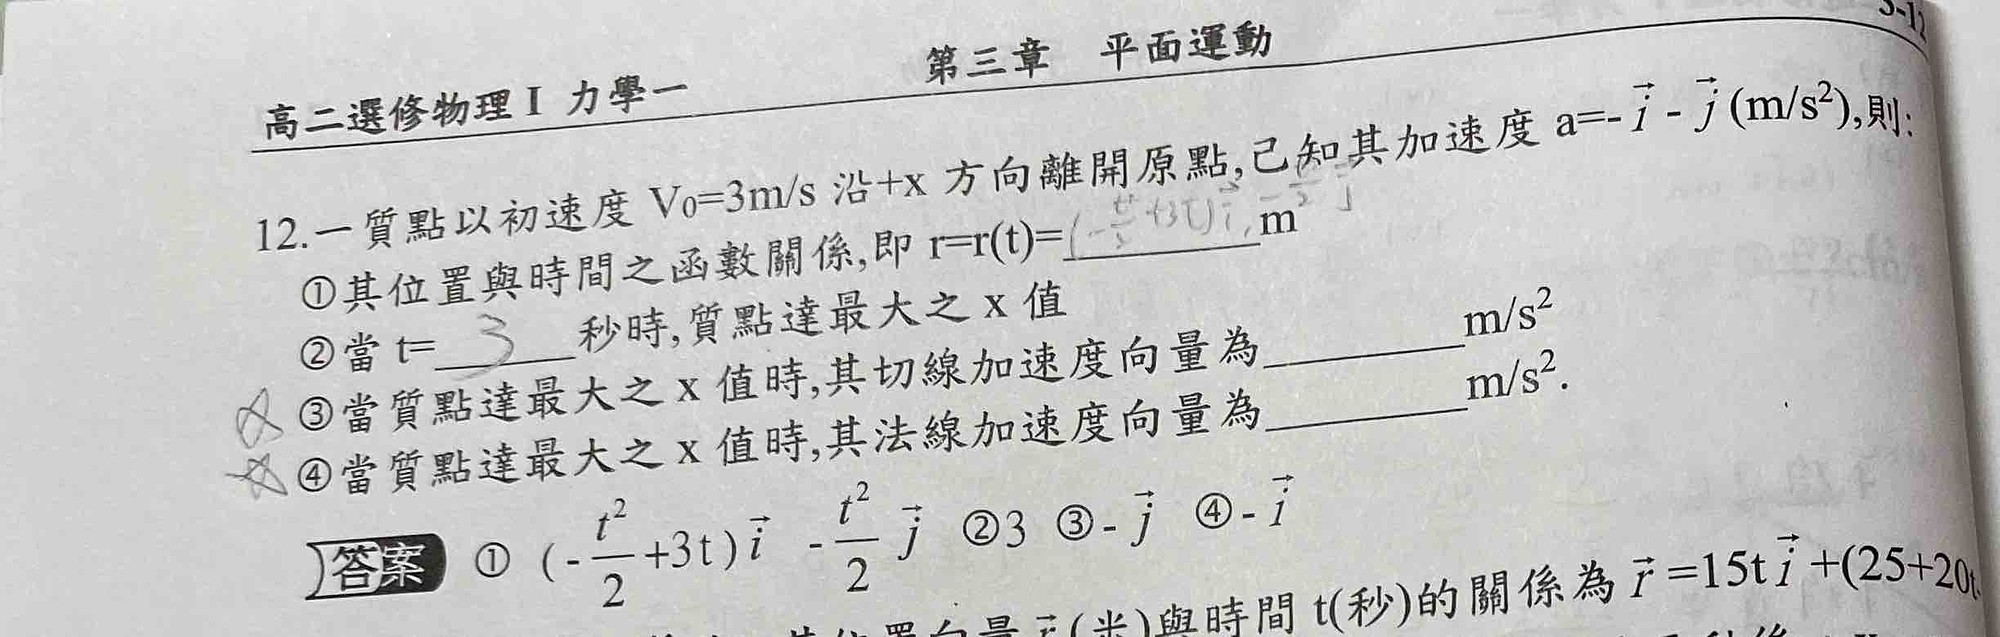 高二選修物理 I 力學一 第三章 平面運動
12.一質點以初速度 V₀=3m/s 沿+x 方向離開原點,已知其加速度 a=-i⃗ - j⃗ (m/s²),則:
①其位置與時間之函數關係,即 r=r(t)=(-t²/2+3t)i⃗, m
②當 t=3秒時,質點達最大之 x 值
③當質點達最大之 x 值時,其切線加速度向量為______m/s²
④當質點達最大之 x 值時,其法線加速度向量為______m/s².
答案 ① (-t²/2+3t)i⃗ -t²/2 j⃗ ②3 ③-j⃗ ④-i⃗
(米)與時間 t(秒)的關係為 r⃗=15t i⃗+(25+20t